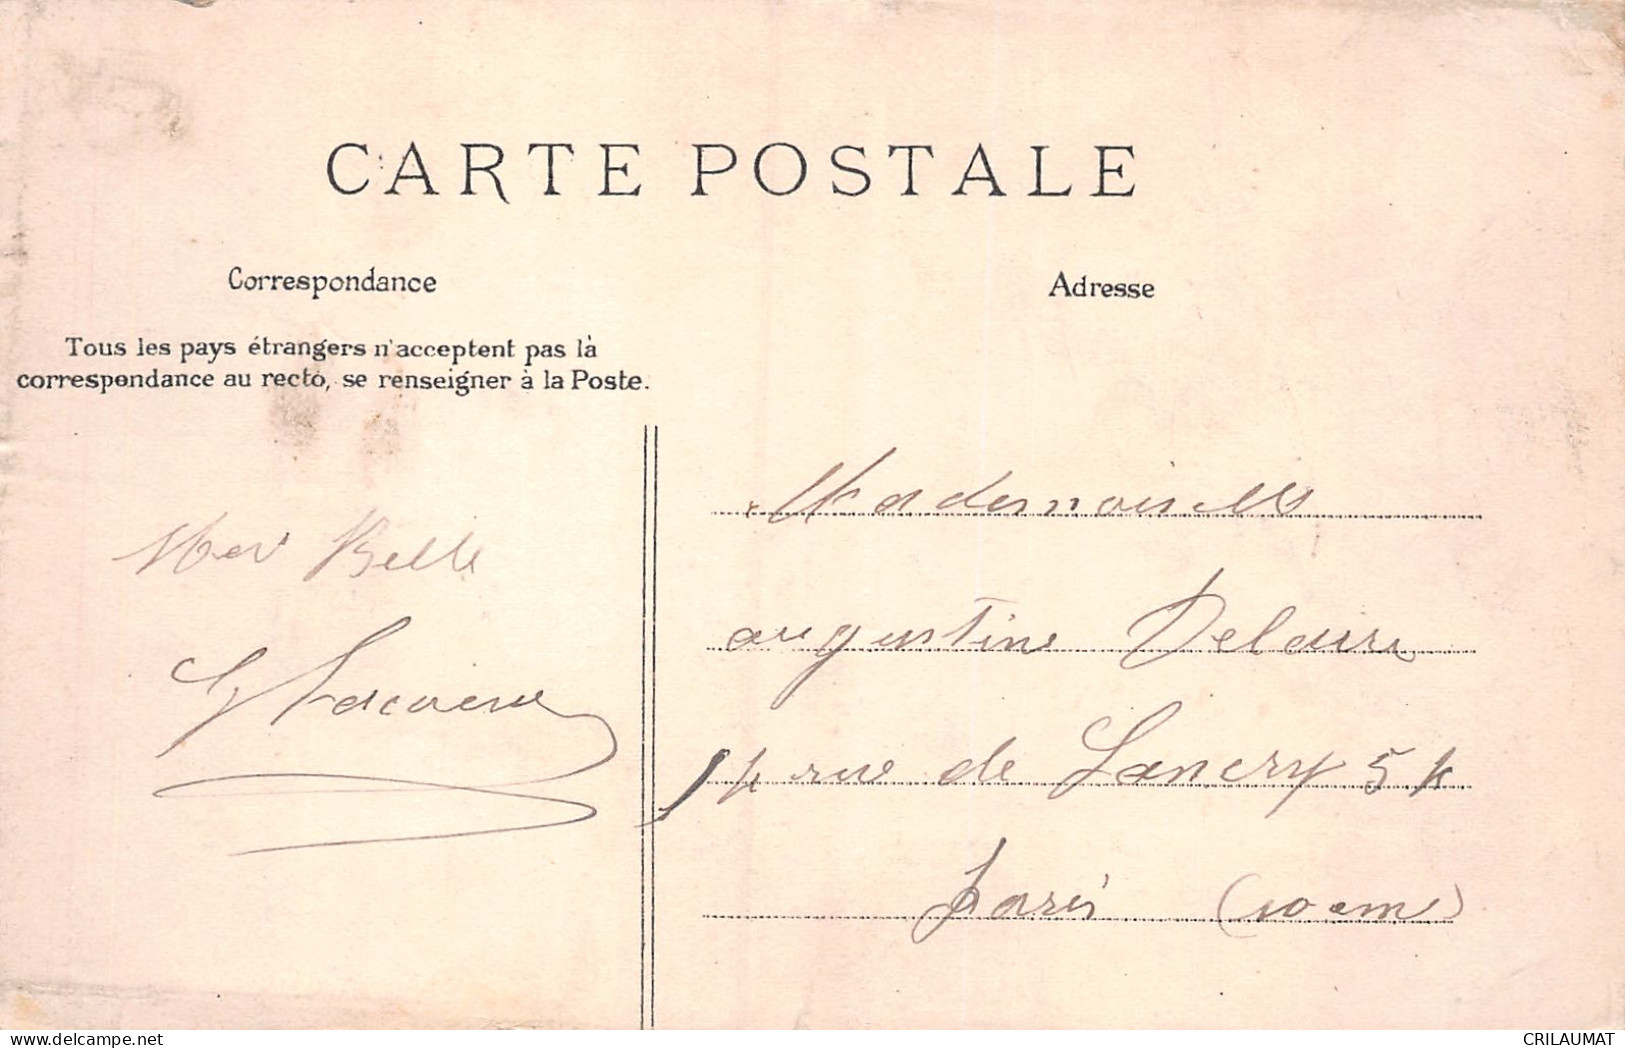 CARTE POSTALE
Correspondance
Tous les pays étrangers n'acceptent pas là
correspondance au recto, se renseigner à la Poste.
Belle
Adresse
Mademoiselle
augustine Delaire
rue de Lancry 54
Paris (10 em)
delcampe.net
CRILAUMAT